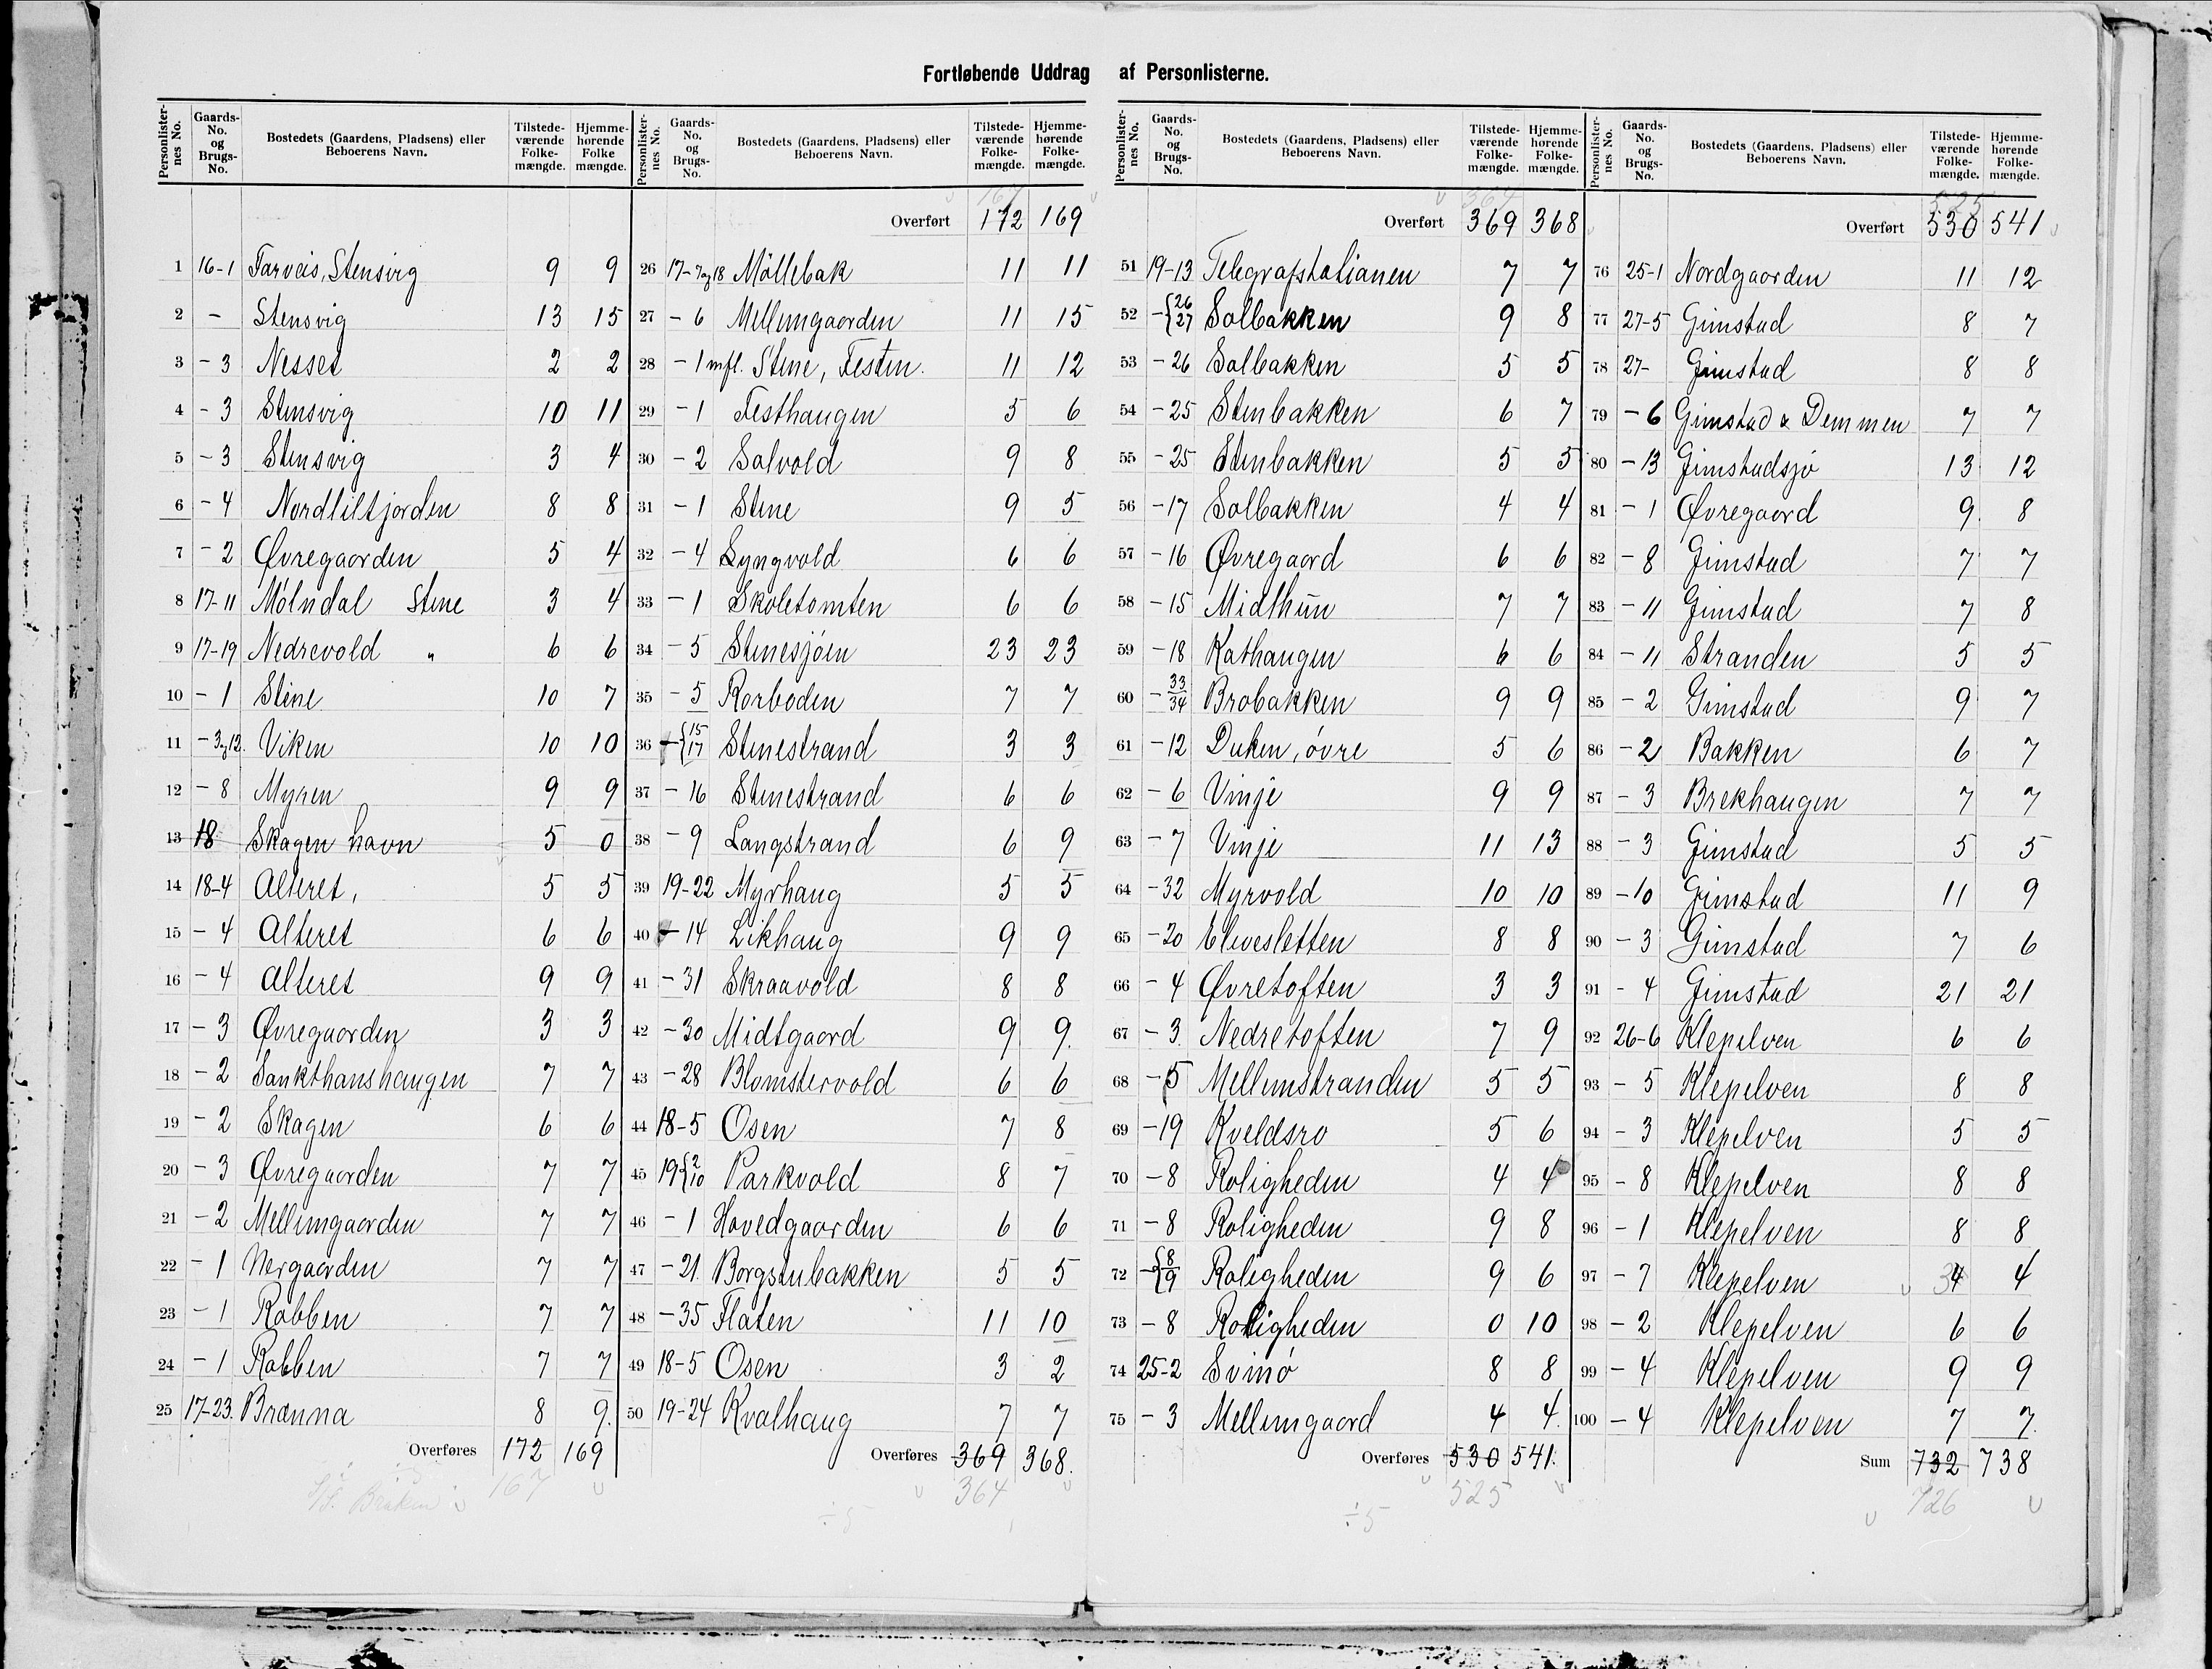 Fortløbende Uddrag af Personlisterne.
Personlister-nes No. | Gaards-No. og Brugs-No. | Bostedets (Gaardens, Pladsens) eller Beboerens Navn. | Tilstede-værende Folke-mængde. | Hjemme-hørende Folke mængde.
1 16-1 Farveis, Stensvig 9 9
2 - Stensvig 13 15
3 - 3 Nesset 2 2
4 - 3 Stensvig 10 11
5 - 3 Stensvig 3 4
6 - 4 Nordliltjorden 8 8
7 - 2 Øvregaarden 5 4
8 17-11 Mølndal Stene 3 4
9 17-19 Nedrevold " 6 6
10 - 1 Stene 10 7
11 - 3 og 12. Viken 10 10
12 - 8 Myren 9 9
13 18 Skagen havn 5 0
14 18-4 Alteret, 5 5
15 - 4 Alteret 6 6
16 - 4 Alteret 9 9
17 - 3 Øvregaarden 3 3
18 - 2 Sankthanshaugen 7 7
19 - 2 Skagen 6 6
20 - 3 Øvregaarden 7 7
21 - 2 Mellemgaarden 7 7
22 - 1 Nergaarden 7 7
23 - 1 Robben 7 7
24 - 1 Robben 7 7
25 17-23. Brænna 8 9.
Overføres 172 169
167
Personlister-nes No. | Gaards-No. og Brugs-No. | Bostedets (Gaardens, Pladsens) eller Beboerens Navn. | Tilstede-værende Folke-mængde. | Hjemme-hørende Folke-mængde.
167
Overført 172 169
26 17-7 og 18 Möllebak 11 11
27 - 6 Mellemgaarden 11 15
28 - 1 mfl. Stene, Festen. 11 12
29 - 1 Festhaugen 5 6
30 - 2 Solvold 9 8
31 - 1 Stene 9 5
32 - 4 Lyngvold 6 6
33 - 1 Skoletomten 6 6
34 - 5 Stenesjøen 23 23
35 - 5 Rorboden 7 7
36 - {15 17 Stenestrand 3 3
37 - 16 Stenestrand 6 6
38 - 9 Langstrand 6 9
39 19-22 Myrhaug 5 5
40 - 14 Likhaug 9 9
41 - 31 Skraavold 8 8
42 - 30 Midtgaard 9 9.
43 - 28 Blomstervold 6 6
44 18-5 Osen 7 8
45 19{2 10 Parkvold 8 7
46 - 1 Hovedgaarden 6 6
47 - 21. Borgstubakken 5 5
48 - 35 Flaten 11 10
49 18-5 Osen 3 2
50 19-24 Kvalhaug 7 7
Overføres 369 368.
364
÷5
Personlister-nes No. | Gaards-No. og Brugs-No. | Bostedets (Gaardens, Pladsens) eller Beboerens Navn. | Tilstede-værende Folke-mængde. | Hjemme-hørende Folke-mængde.
364
Overført 369 368
51 19-13 Telegrafstationen 7 7
52 - {26 27 Solbakken 9 8
53 - 26 Solbakken 5 5
54 - 25 Stenbakken 6 7
55 - 25 Stenbakken 5 5
56 - 17 Solbakken 4 4
57 - 16 Øvregaard 6 6
58 - 15 Midthun 7 7
59 - 18 Kathaugen 6 6
60 - 33 34 Brobakken 9 9
61 - 12 Duken, övre 5 6
62 - 6 Vinje 9 9
63 - 7 Vinje 11 13
64 - 32 Myrvold 10 10
65 - 20 Elvesletten 8 8
66 - 4 Øvretoften 3 3
67 - 3. Nedretoften 7 9
68 - 5 Mellemstranden 5 5
69 - 19 Kveldsro 5 6
70 - 8 Roligheden 4 4
71 - 8 Roligheden 9 8
72 - {8 9 Roligheden 9 6
73 - 8 Roligheden 0 10
74 25-2 Svinø 8 8
75 - 3 Mellemgaard 4 4.
Overføres 530 541.
525
÷5
Personlister-nes No. | Gaards-No. og Brugs-No. | Bostedets (Gaardens, Pladsens) eller Beboerens Navn. | Tilstede-værende Folke-mængde. | Hjemme-hørende Folke-mængde.
525
Overført 530 541
76 25-1 Nordgaarden 11 12
77 27-5 Gimstad 8 7
78 27- Gimstad 8 8
79 - 6 Gimstad & Demmen 7 7
80 - 13 Gimstadsjö 13 12
81 - 1 Øvregaard 9 8
82 - 8 Gimstad 7 7
83 - 11 Gimstad 7 8
84 - 11 Stranden 5 5
85 - 2 Gimstad 9 7
86 - 2 Bakken 6 7
87 - 3 Brekhaugen 7 7
88 - 3 Gimstad 5 5
89 - 10 Gimstad 11 9
90 - 3 Gimstad 7 6
91 - 4 Gimstad 21 21
92 26-6 Klepelven 6 6
93 - 5 Klepelven 8 8
94 - 3 Klepelven 5 5
95 - 8 Klepelven 8 8
96 - 1 Klepelven 8 8
97 - 7 Klepelven 3 4 4
98 - 2 Klepelven 6 6
99 - 4 Klepelven 9 9
100 - 4 Klepelven 7 7.
Sum 732 738
726